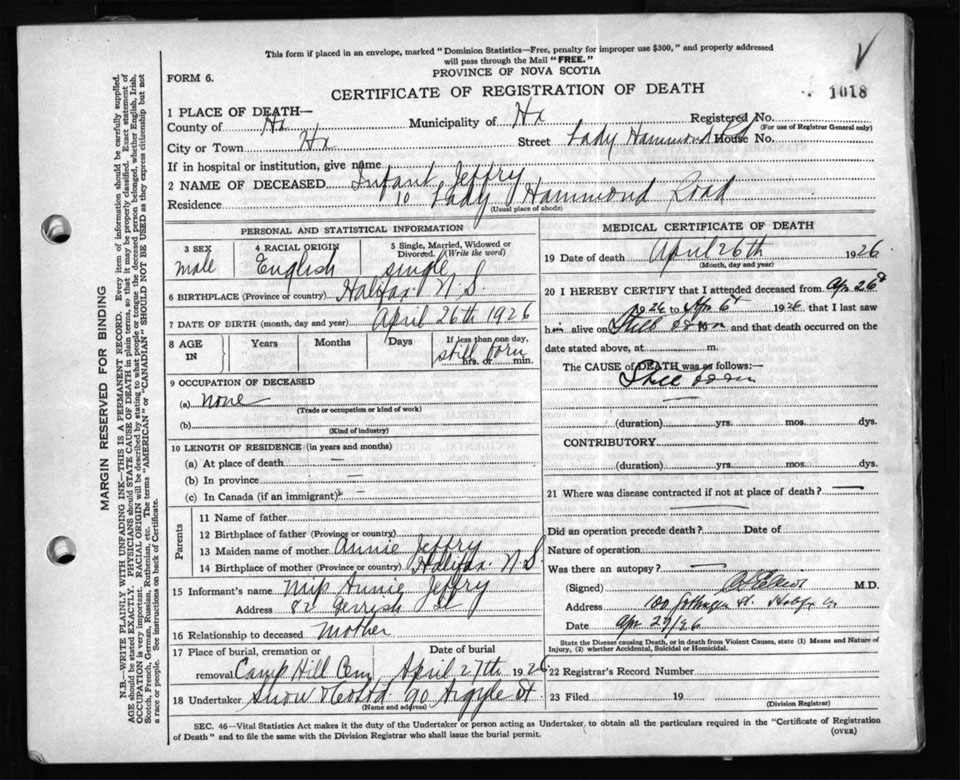 This form if placed in an envelope, marked "Dominion Statistics—Free, penalty for improper use $300," and properly addressed
will pass through the Mail "FREE."
FORM 6.
PROVINCE OF NOVA SCOTIA
CERTIFICATE OF REGISTRATION OF DEATH
1018
1 PLACE OF DEATH—
County of Hx Municipality of Hx Registered No.
(For use of Registrar General only)
City or Town Hx Street Lady Hammond Rd House No.
If in hospital or institution, give name
2 NAME OF DECEASED Infant Jeffry
Residence 10 Lady Hammond Road
(Usual place of abode)
PERSONAL AND STATISTICAL INFORMATION
3 SEX male
4 RACIAL ORIGIN English
5 Single, Married, Widowed or Divorced. (Write the word) single
6 BIRTHPLACE (Province or country) Halifax N.S.
7 DATE OF BIRTH (month, day and year) April 26th 1926
8 AGE IN Years Months Days If less than one day, still born hrs. or min.
9 OCCUPATION OF DECEASED
(a) none
(Trade or occupation or kind of work)
(b)
(Kind of industry)
10 LENGTH OF RESIDENCE (in years and months)
(a) At place of death —
(b) In province —
(c) In Canada (if an immigrant) —
Parents
11 Name of father
12 Birthplace of father (Province or country)
13 Maiden name of mother Annie Jeffry
14 Birthplace of mother (Province or country) Halifax N.S.
15 Informant's name Miss Annie Jeffry
Address 82 Gerrish St
16 Relationship to deceased Mother
17 Place of burial, cremation or removal Camp Hill Cem Date of burial April 27th 1926
18 Undertaker Snow & Co Ltd 90 Argyle St.
(Name and address)
MEDICAL CERTIFICATE OF DEATH
19 Date of death April 26th 1926
(Month, day and year)
20 I HEREBY CERTIFY that I attended deceased from Apr 26th
1926 to Apr 1926 that I last saw
h alive on Still born and that death occurred on the
date stated above, at m.
The CAUSE OF DEATH was as follows:—
Still born
(duration) yrs. mos. dys.
CONTRIBUTORY
(duration) yrs. mos. dys.
21 Where was disease contracted if not at place of death? —
Did an operation precede death? Date of
Nature of operation
Was there an autopsy? —
(Signed) M.D.
Address
Date Apr 27/26
State the Disease causing Death, or in death from Violent Causes, state (1) Means and Nature of
Injury, (2) whether Accidental, Suicidal or Homicidal.
22 Registrar's Record Number
23 Filed 19
(Division Registrar)
SEC. 46—Vital Statistics Act makes it the duty of the Undertaker or person acting as Undertaker, to obtain all the particulars required in the "Certificate of Registration
of Death" and to file the same with the Division Registrar who shall issue the burial permit.
(OVER)
MARGIN RESERVED FOR BINDING
N.B.—WRITE PLAINLY WITH UNFADING INK—THIS IS A PERMANENT RECORD. Every item of information should be carefully supplied.
AGE should be stated EXACTLY. PHYSICIANS should STATE CAUSE OF DEATH in plain terms, so that it may be properly classified. Exact statement of
OCCUPATION is very important. RACIAL ORIGIN will be described by stating to what people or tongue the deceased person belonged, whether English, Irish,
Scotch, French, German, Russian, Ruthenian, etc. The terms "AMERICAN" or "CANADIAN" SHOULD NOT BE USED as they express citizenship but not
a race or people. See instructions on back of Certificate.